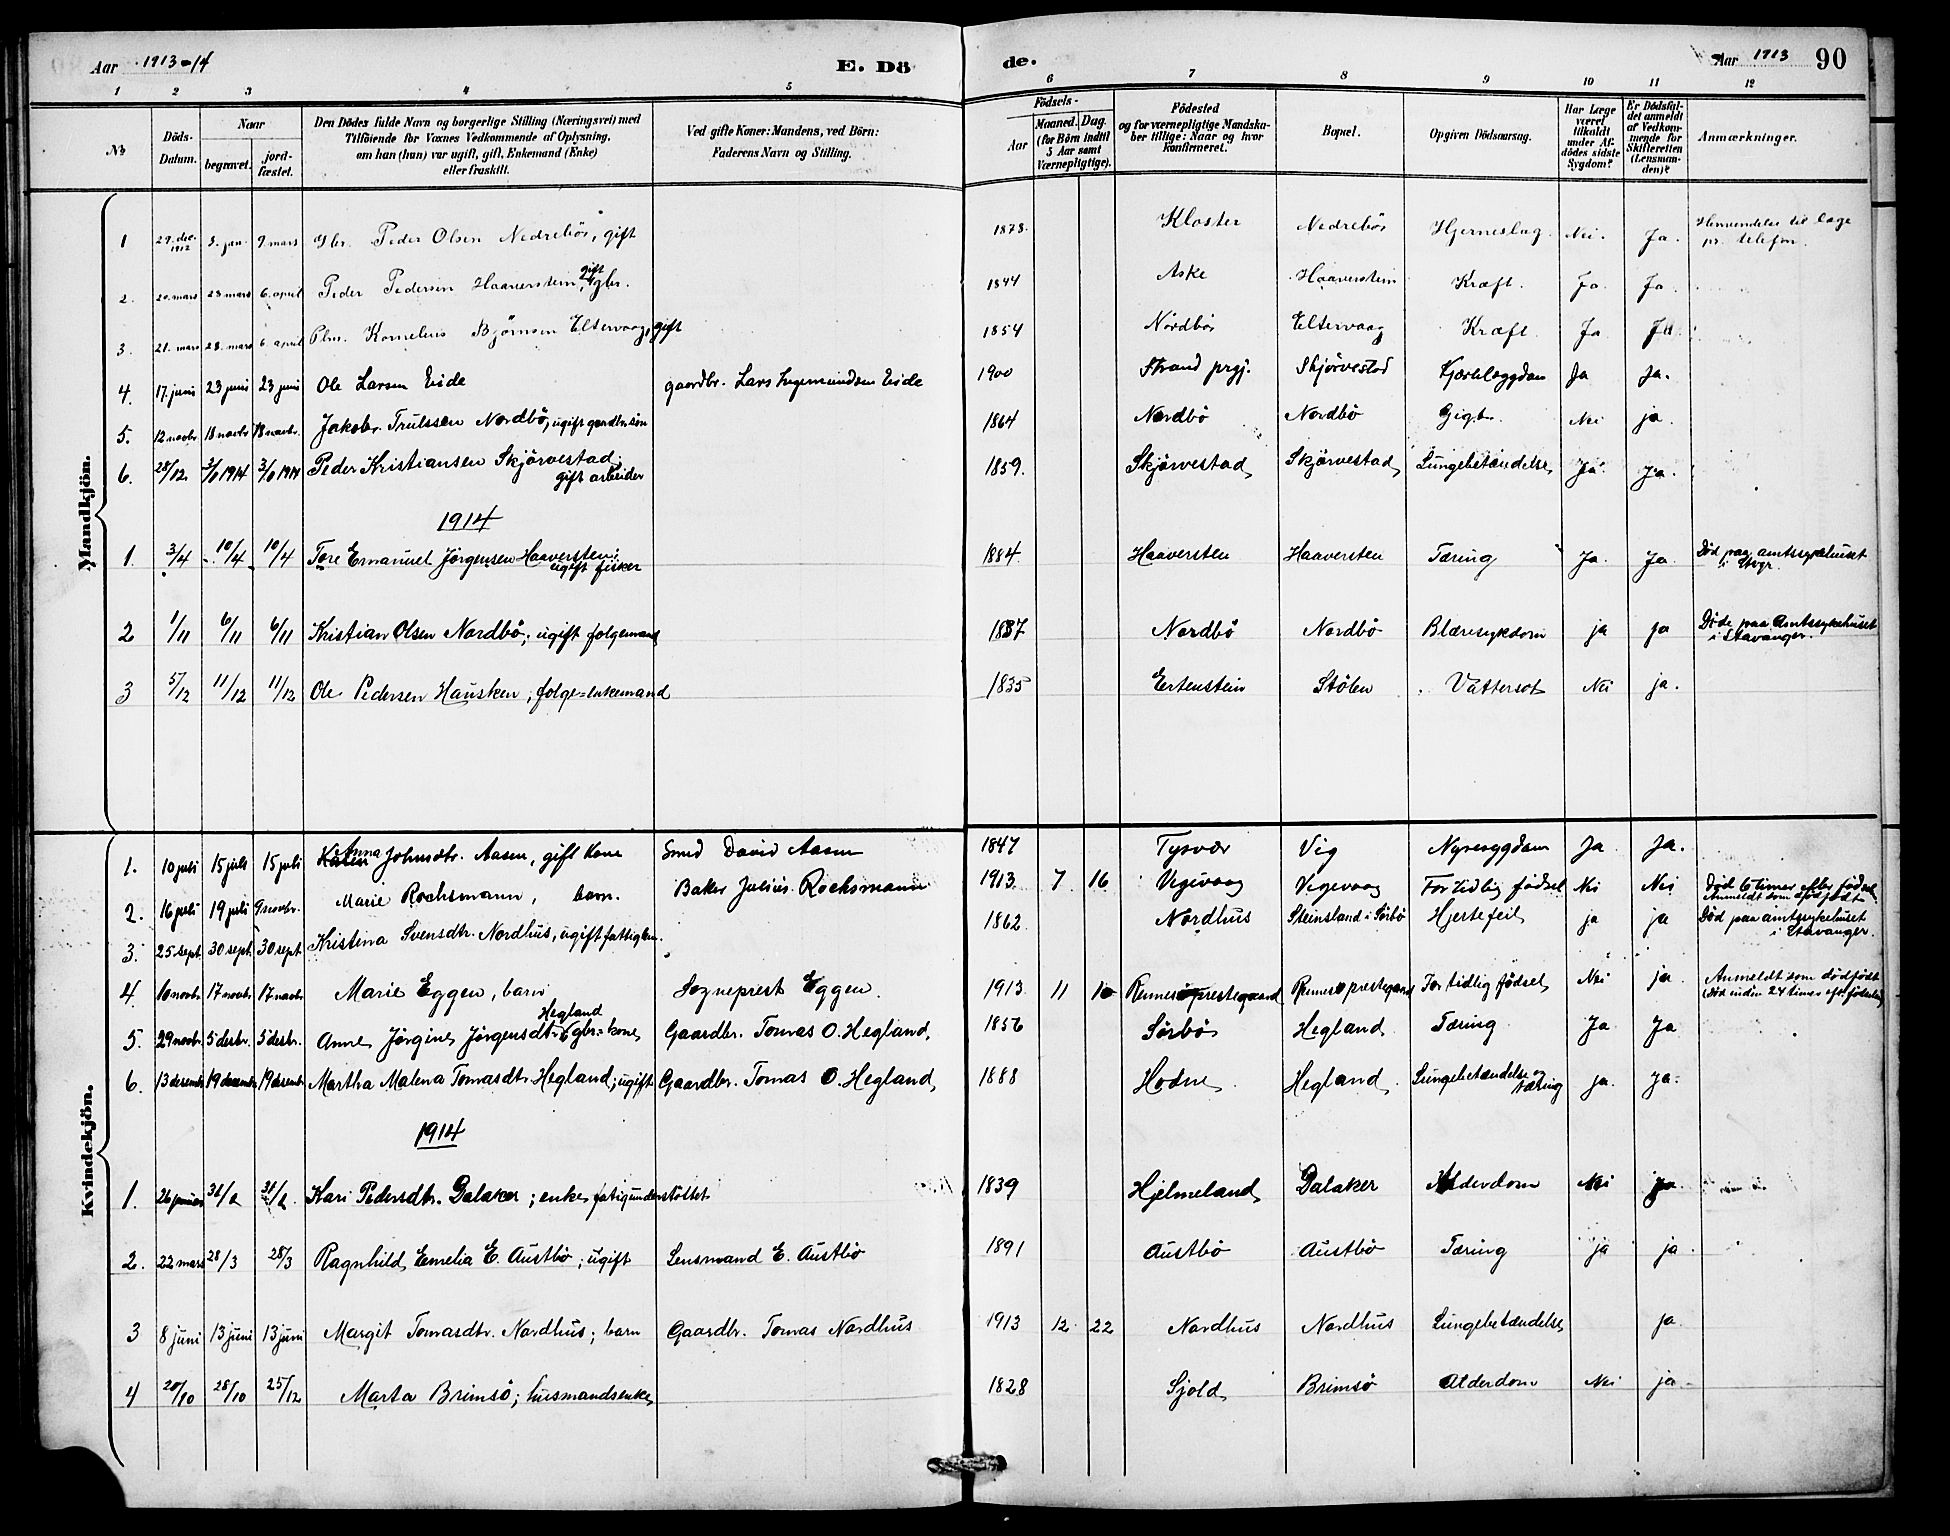 Aar 1913-14 E. Dö de. Aar 1913 90
1 2 3 4 5 6 7 8 9 10 11 12
No. Döds-Datum. Naar begravet. jord-fæstet. Den Dödes fulde Navn og borgerlige Stilling (Næringsvei) med Tilföiende for Voxnes Vedkommende af Oplysning, om han (hun) var ugift, gift, Enkemand (Enke) eller fraskilt. Ved gifte Koner: Mandens, ved Börn: Faderens Navn og Stilling. Födsels- Aar Maaned. Dag. (for Börn indtil 5 Aar samt Værnepligtige). Födested og for værnepligtige Mandskaber tillige: Naar og hvor konfirmeret. Bopæl. Opgiven Dödsaarsag. Har Læge været tilkaldt under Afdödes sidste Sygdom? Er Dödsfaldet anmeldt af Vedkommende for Skifteretten (Lensmanden)? Anmærkninger.
Mandkjön.
1 29. dec. 1912 3. jan. 9 mars Gbr. Peder Olsen Nedrebös, gift 1878. Kloster Nedrebös Hjerneslag. Nei. Ja. Henvendelse til læge pr. telefon.
2. 20. mars 28 mars 6. april Peder Pedersen Haaverstein, gift gbr. 1844 Aske Haaverstein Kræft. Ja. Ja.
3. 21. mars 28. mars 6. april Plm. Kornelius Bjørnsen Eltervaag, gift 1854 Nordbö Eltervaag Kræft. Ja Ja.
4. 17. juni 23 juni 23 juni Ole Larsen Eide gaardbr. Lars Ingemundsen Eide 1900 Strand prgj. Skjörvestad Ja Ja.
5. 12 novbr 18 novbr 18 novbr. Jakob Trulssen Nordbö, ugift gardbr. sön 1864 Nordbö Nordbö Gigt. Nei ja.
6. 28/12 3/1 1914 3/1 1914 Peder Kristiansen Skjörvestad; gift arbeider 1859. Skjörvestad Skjörvestad Lungebetændelse Ja. Ja.
1914
1. 3/4 10/4 10/4 Tore Emanuel Jörgensen Haaversten; ugift fisker 1884 Haaversten Haaversten Tæring Ja. Ja Död paa amtssykehuset i Stvgr.
2 1/11 6/11 6/11 Kristian Olsen Nordbö; ugift folgemand 1837 Nordbö Nordbö Blæresykdom ja ja Döde paa Amtssykehuset i Stavanger.
3 5/12 11/12 11/12 Ole Pedersen Hausken; folge=enkemand 1835 Eertenstein Stölen Vattersot Nei ja.
Kvindekjön.
1. 10 juli 15 juli 15 juli Anna Johnsdtr. Aasen, gift Kone Smed David Aasen 1847 Tysvær Vig Nyresygdom Ja Ja.
2. 16 juli 19 juli 9 novbr. Marie Rochsmann, barn. Baker Julius Rochsmann 1913. 7 16 Vigevaag Vigevaag For tidlig födsel Nei Nei Död 6 timer efter födsel Anmeldt som dödfödt
3. 25 sept. 30 sept. 30 sept. Kristina Svensdtr. Nordhus, ugift fattiglem. 1862 Nordhus Steinsland i Sörbö Hjertefeil ja ja Död paa amtssykehuset i Stavanger.
4. 10 novbr 17 novbr 17 novbr Marie Eggen, barn Sogneprest Eggen. 1913. 11 10 Rennesöprestegaard Rennesö prestegaard For tidlig födsel Nei ja. Anmeldt som dödfödt (död inden 24 timer eft. födselen)
5. 29 novbr. 5 desbr. 5 desbr. Anne Jörgine Jörgensdtr Hegland gbr=kone Gaardbr. Tomas O. Hegland. 1856 Sörbö Hegland Tæring Ja Ja
6. 13 desembr 19 desembr 19 desembr Martha Malena Tomasdtr. Hegland; ugift Gaardbr. Tomas O. Hegland 1888 Hodne Hegland Lungebetændelse og tæring ja. ja.
1914
1. 26 januar Kari Pedersdtr. Dalaker; enke, fatigunderstöttet 1839 Hjelmeland Dalaker Alderdom Nei ja
2. 22 mars 28/3 28/3 Ragnhild Emelia E. Austbö; ugift Lensmand E. Austbö 1891 Austbö Austbö Tæring ja ja
3 8 juni 13 juni 13 juni Margit Tomasdtr. Nordhus; barn Gaardbr. Tomas Nordhus 1913 12 22 Nordhus Nordhus Lungebetændelse ja.
4 20/10 28/10 25/12 Marta Brimsö; husmandsenke 1828 Sjold Brimsö Alderdom Nei ja.